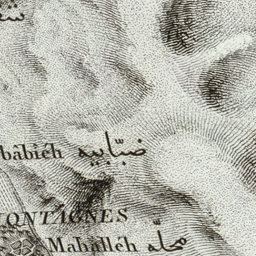 bâbiéh ضبّابيه
ONTAGNES
Mahalléh محلّه